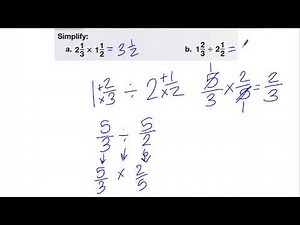 Simplify:
a. 2 1/3 × 1 1/2 = 3 1/2
b. 1 2/3 ÷ 2 1/2 =
1 +2/×3 ÷ 2 +1/×2
5/3 × 2/5 = 2/3
1
1
5/3 ÷ 5/2
5/3 × 2/5